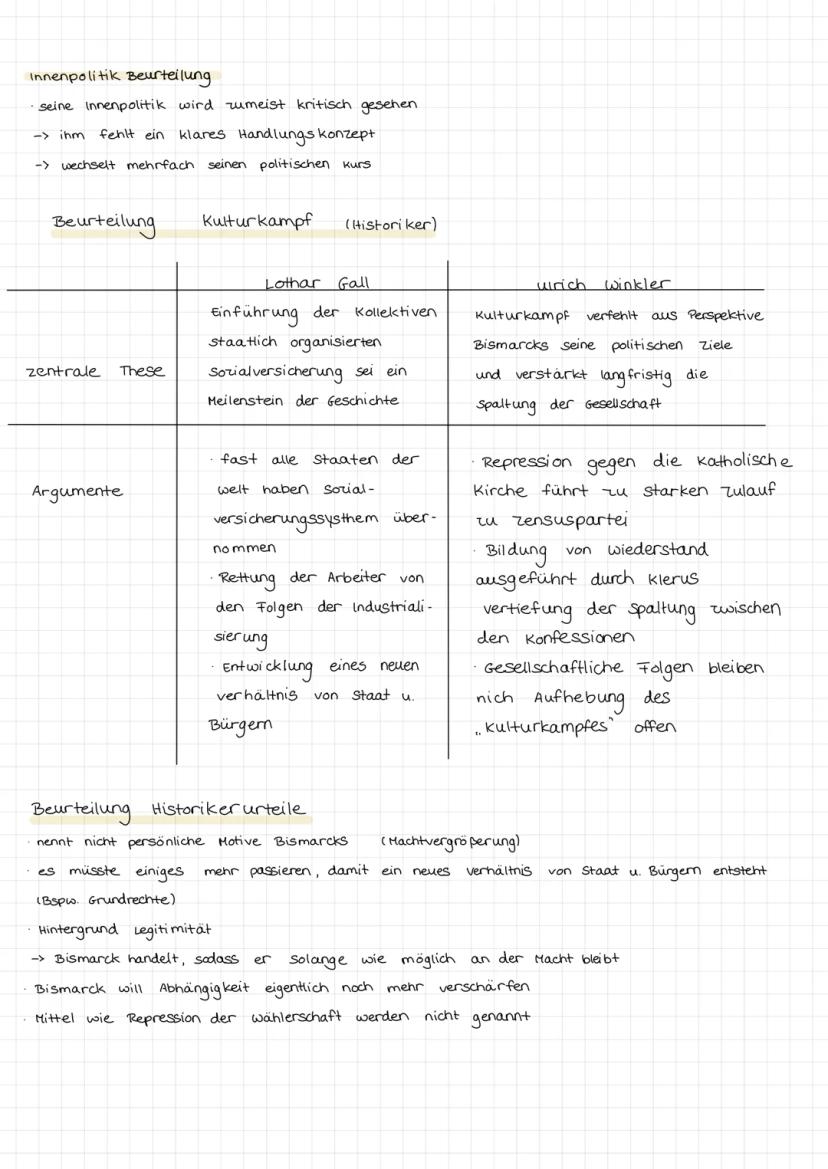 Innenpolitik Beurteilung
· seine Innenpolitik wird zumeist kritisch gesehen
-> ihm fehlt ein klares Handlungskonzept
-> wechselt mehrfach seinen politischen Kurs
Beurteilung Kulturkampf (Historiker)
Lothar Gall
ulrich Winkler
zentrale These
Einführung der Kollektiven
staatlich organisierten
Sozialversicherung sei ein
Meilenstein der Geschichte
Kulturkampf verfehlt aus Perspektive
Bismarcks seine politischen Ziele
und verstärkt langfristig die
Spaltung der Gesellschaft
Argumente
· fast alle Staaten der
Welt haben Sozial-
versicherungssysthem über-
nommen
· Rettung der Arbeiter von
den Folgen der Industriali-
sierung
· Entwicklung eines neuen
verhältnis von Staat u.
Bürgern
· Repression gegen die Katholische
Kirche führt zu starken Zulauf
zu Zensuspartei
· Bildung von wiederstand
ausgeführt durch Klerus
vertiefung der Spaltung zwischen
den Konfessionen
· Gesellschaftliche Folgen bleiben
nich Aufhebung des
„Kulturkampfes" offen
Beurteilung Historikerurteile
· nennt nicht persönliche Motive Bismarcks (Machtvergrößerung)
· es müsste einiges mehr passieren, damit ein neues Verhältnis von Staat u. Bürgern entsteht
(Bspw. Grundrechte)
· Hintergrund Legitimität
-> Bismarck handelt, sodass er solange wie möglich an der Macht bleibt
· Bismarck will Abhängigkeit eigentlich noch mehr verschärfen
· Mittel wie Repression der Wählerschaft werden nicht genannt